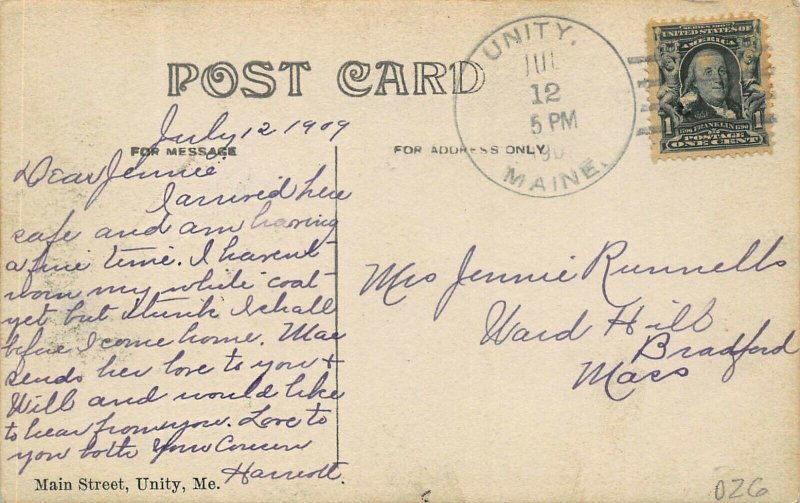 POST CARD
UNITY,
JUL
12
5 PM
190
MAINE.
SERIES 1902
UNITED STATES OF
AMERICA
1 1706 FRANKLIN 1790 1
POSTAGE
ONE CENT
FOR MESSAGE
FOR ADDRESS ONLY
July 12 1909
Dear Jennie
I arrived here
safe and am having
a fine time. I havent
worn my white coat
yet but think I shall
before I come home. Mae
sends her love to you +
Will and would like
to hear from you. Love to
you both Your Cousin
Harriott.
Mrs Jennie Runnells
Ward Hill
Bradford
Mass
Main Street, Unity, Me.
026